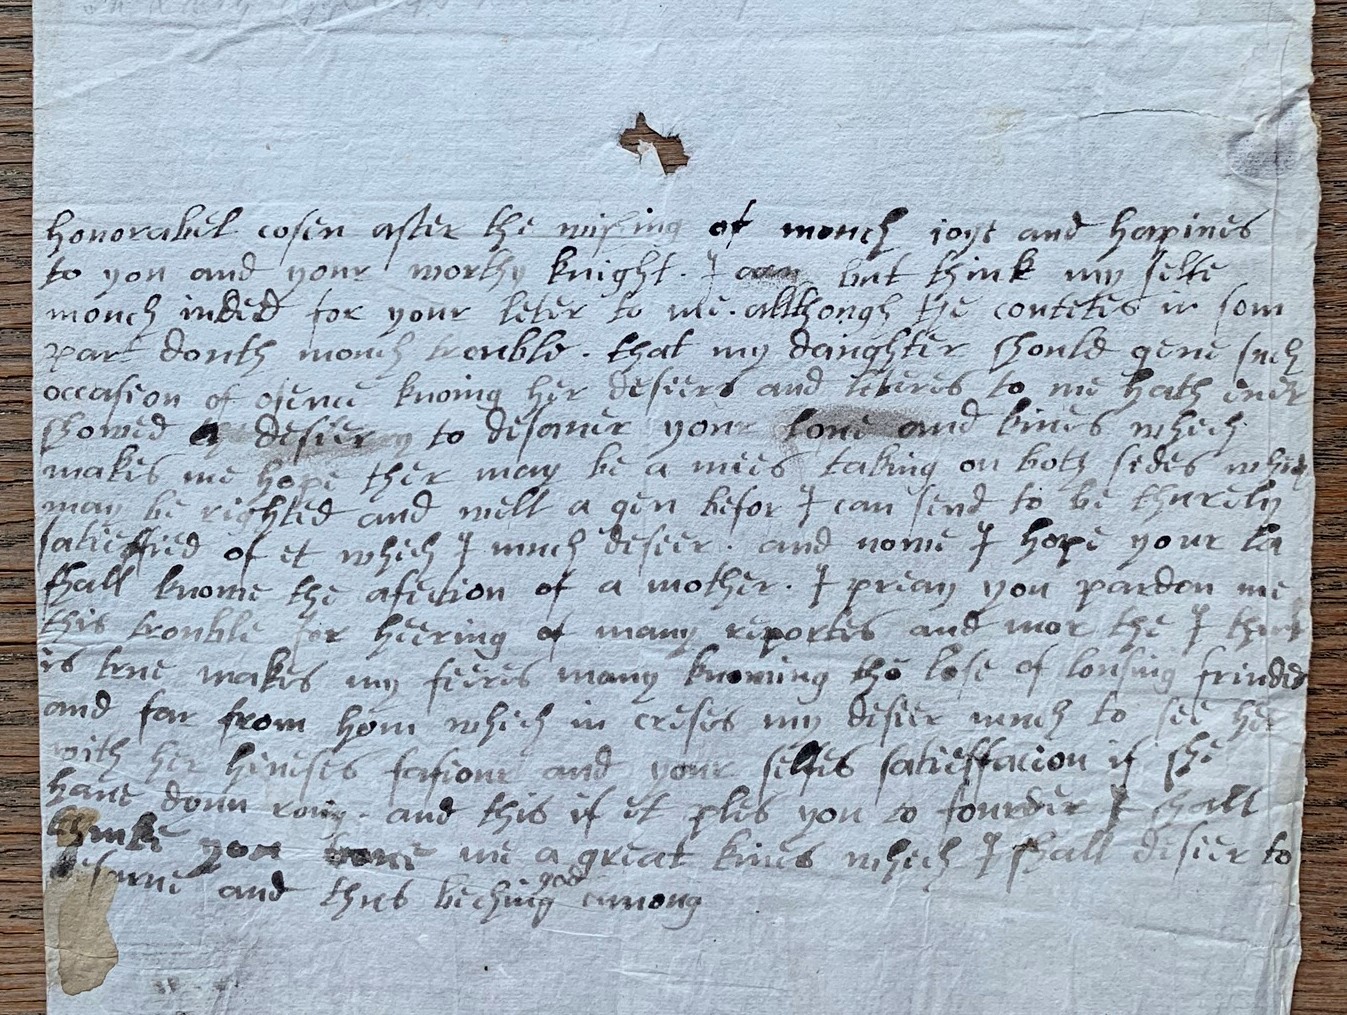 honorabel cosen after the wising of mouch joye and hapines
to you and your worthy knight. I can but think my selfe
mouch indeed for your leter to me. allthough the contetes in som
part douth mouch trouble. that my daughter should geve such
occasion of ofence knoing her desiers and leteres to me hath ever
showed a desier to desarve your love and kines which
makes me hope ther may be a mies taking on both sides which
may be righted and well a gen befor I can send to be thurely
satiesfied of et which I much desier. and nowe I hope your La
shall knowe the afection of a mother. I preay you pardon me
this trouble for heering of many reportes and mor the I think
is true makes my feeres many knowing the lose of lousing frindes
and far from hom which in creses my desier much to see her
with her hineses favour and your selfes satiesfacion if she
have donn rong. and this if et ples you to fourder I shall
think you have me a great kines which I shall desier to
desarve and thus beching god among